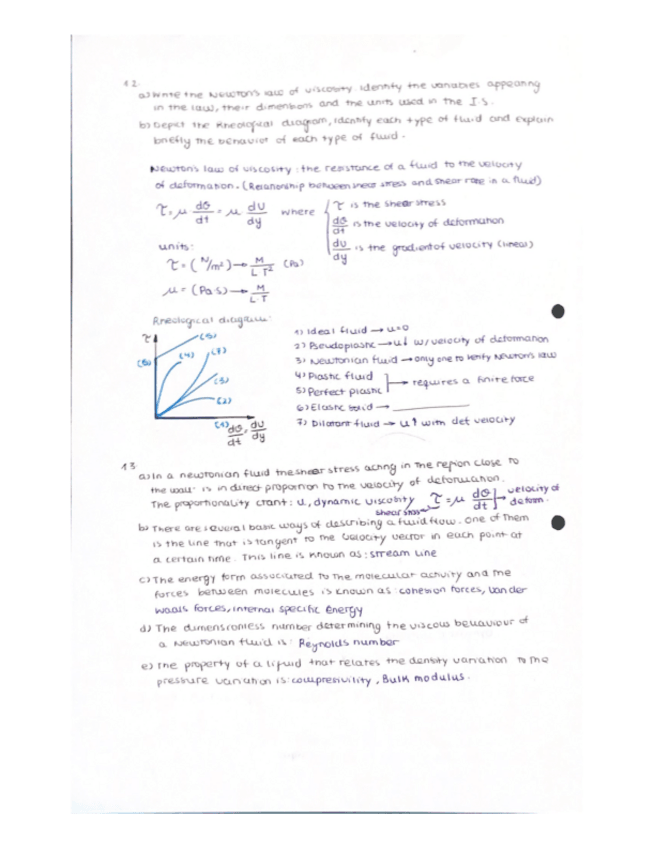 12.
a) Write the Newton's law of viscosity. Identify the variables appearing
in the law, their dimensions and the units used in the I.S.
b) Depict the Rheological diagram, identify each type of fluid and explain
briefly the behavior of each type of fluid.
Newton's law of viscosity: the resistance of a fluid to the velocity
of deformation. (Relationship between shear stress and shear rate in a fluid)
τ = μ dθ/dt = μ dU/dy where { τ is the shear stress
dθ/dt is the velocity of deformation
dU/dy is the gradient of velocity (lineal)
units:
τ = (N/m²) → M/LT² (Pa)
μ = (Pa·s) → M/LT
Rheological diagram:
τ
(6) (5) (4) (7) (3) (2) (1)
dθ/dt, dU/dy
1) Ideal fluid → μ=0
2) Pseudoplastic → μ↓ w/ velocity of deformation
3) Newtonian fluid → only one to verify Newton's law
4) Plastic fluid
5) Perfect plastic → requires a finite force
6) Elastic solid →
7) Dilatant fluid → μ↑ with def velocity
13.
a) In a newtonian fluid the shear stress acting in the region close to
the wall: is in direct proportion to the velocity of deformation.
The proportionality ctant: μ, dynamic viscosity τ = μ dθ/dt → velocity of deform.
shear stress
b) There are several basic ways of describing a fluid flow. One of them
is the line that is tangent to the velocity vector in each point at
a certain time. This line is known as: stream line
c) The energy form associated to the molecular activity and the
forces between molecules is known as: cohesion forces, Van der
Waals forces, internal specific energy
d) The dimensionless number determining the viscous behaviour of
a Newtonian fluid is: Reynolds number
e) The property of a liquid that relates the density variation to the
pressure variation is: compresivility, Bulk modulus.